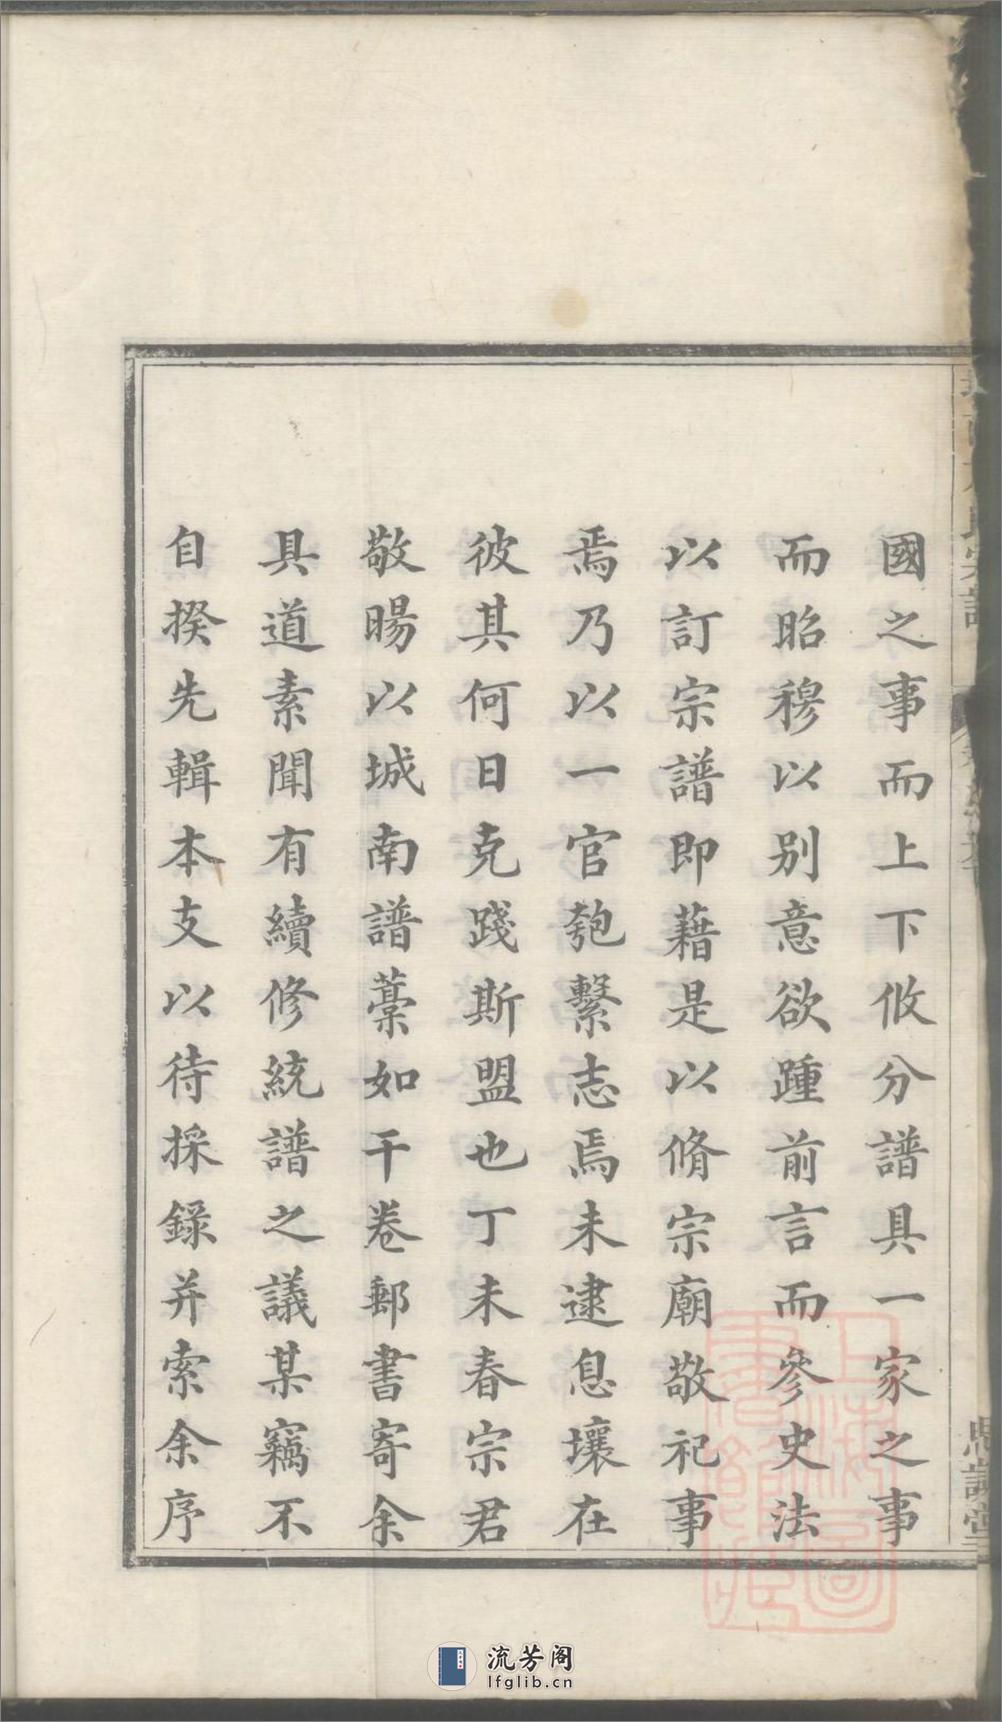 國之事而上下攸分譜具一家之事
而昭穆以別意欲踵前言而參史法
以訂宗譜即藉是以脩宗廟敬祀事
焉乃以一官匏繫志焉未逮息壤在
彼其何日克踐斯盟也丁未春宗君
敬暘以城南譜藁如干卷郵書寄余
具道素聞有續修統譜之議某竊不
自揆先輯本支以待採錄并索余序
上海圖書館藏
流芳阁
lfglib.cn